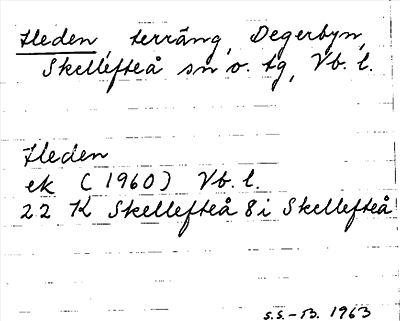 Heden, terräng, Degerbyn,
Skellefteå sn o. tg, Vb. l.
Heden
ek (1960) Vb. l.
22 K Skellefteå 8i Skellefteå
S.S.-B. 1963